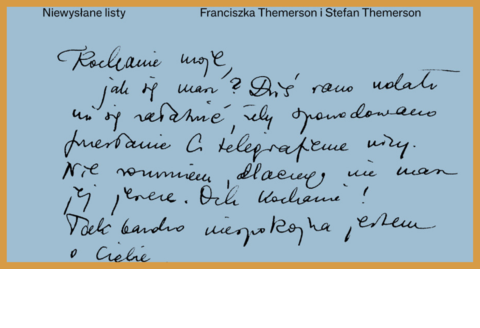 Niewysłane listy Franciszka Themerson i Stefan Themerson
Kochanie moje,
jak się masz? Dziś rano udało
mi się załatwić, żeby spowodowano
przesłanie Ci telegrafem wizy.
Nie rozumiem, dlaczego nie masz
jej jeszcze. Och Kochanie!
Tak bardzo niespokojna jestem
o Ciebie